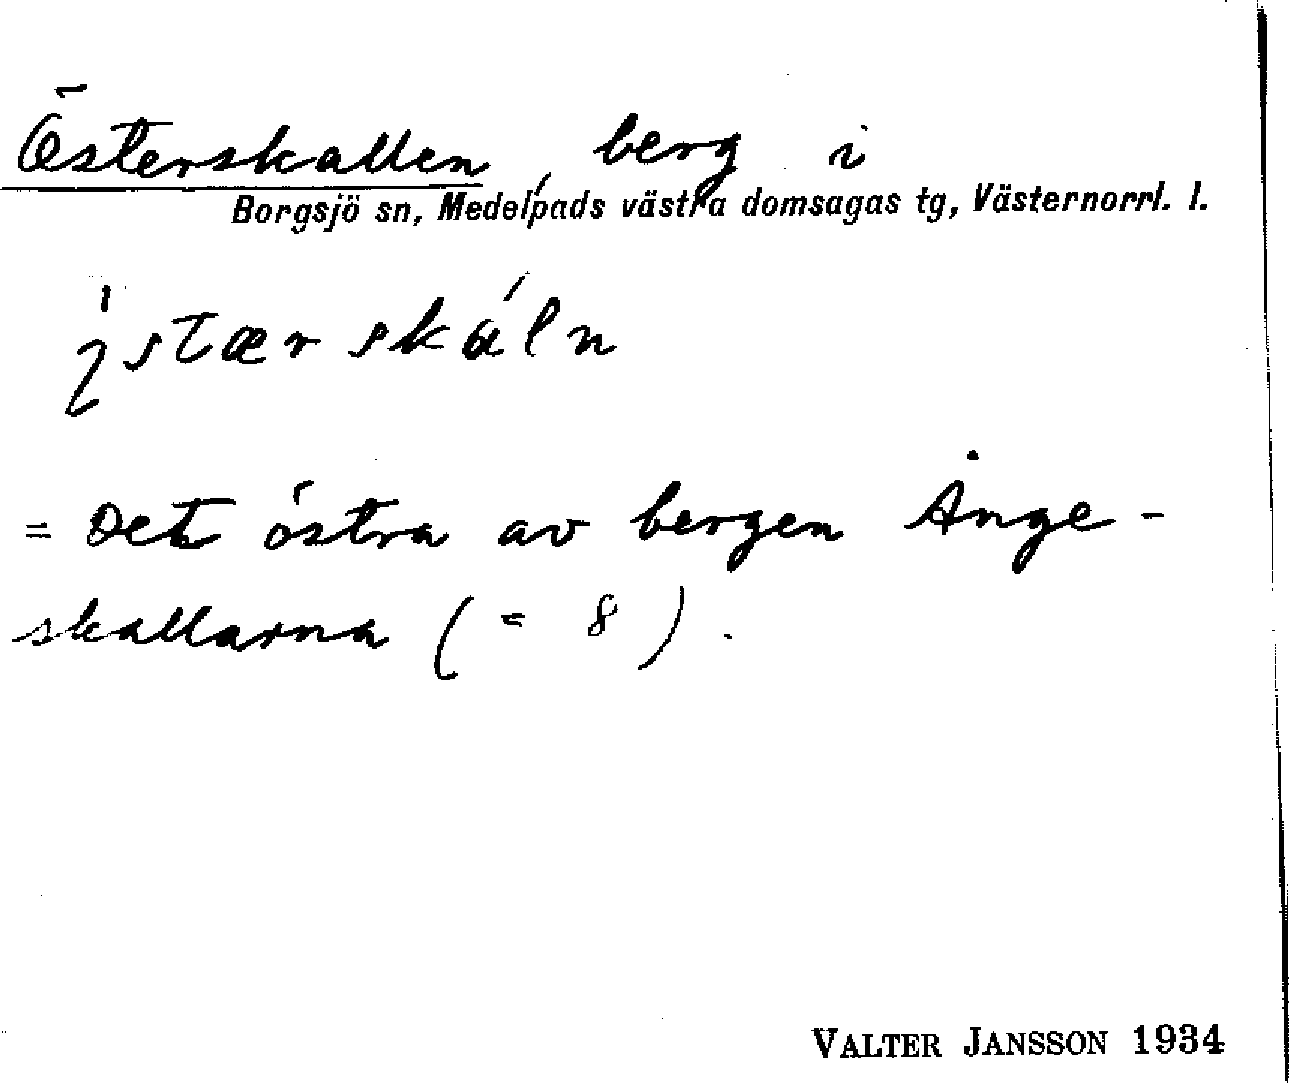 Österskallen, berg i
Borgsjö sn, Medelpads västra domsagas tg, Västernorrl. l.
= Det östra av bergen Ånge-
skallarna (= 8).
VALTER JANSSON 1934